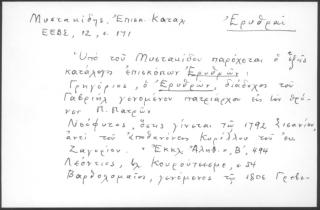 Μυστακίδης, Επισκ. Καταλ Ἐρυθραί
ΕΕΒΣ, 12, σ. 171
Ὑπὸ τοῦ Μυστακίδου παρέχεται ὁ ἑξῆς
κατάλογος ἐπισκόπων Ἐρυθρῶν:
Γρηγόριος, ὁ Ἐρυθρῶν, διάδοχος τοῦ
Γαβριὴλ γενομένου πατριάρχου εἰς τὸν θρό-
νον Π. Πατρῶν
Νεόφυτος, ὅστις γίνεται τῷ 1792 Σισανίου,
ἀντὶ τοῦ ἀποθανόντος Κυρίλλου τοῦ ἐκ
Ζαγορίου. Ἐκκλ. Ἀλήθ., Β', 494
Λεόντιος, σ. 54
Βαρθολομαῖος, γενόμενος τῷ 1806 Γρεβε-